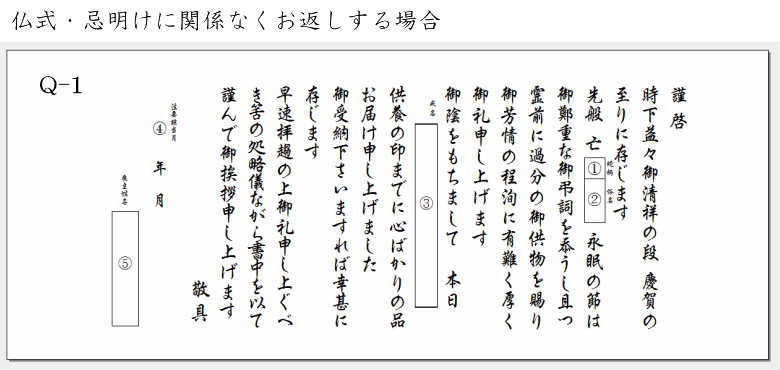 仏式・忌明けに関係なくお返しする場合
Q-1
謹啓
時下益々御清祥の段 慶賀の
至りに存じます
先般 亡 ① ② 永眠の節は
続柄 俗名
御鄭重な御弔詞を忝うし且つ
霊前に過分の御供物を賜り
御芳情の程洵に有難く厚く
御礼申し上げます
御陰をもちまして 本日
戒名
③
供養の印までに心ばかりの品
お届け申し上げました
御受納下さいますれば幸甚に
存じます
早速拝趨の上御礼申し上ぐべ
き筈の処略儀ながら書中を以て
謹んで御挨拶申し上げます
敬具
法要該当月
④ 年 月
喪主姓名
⑤